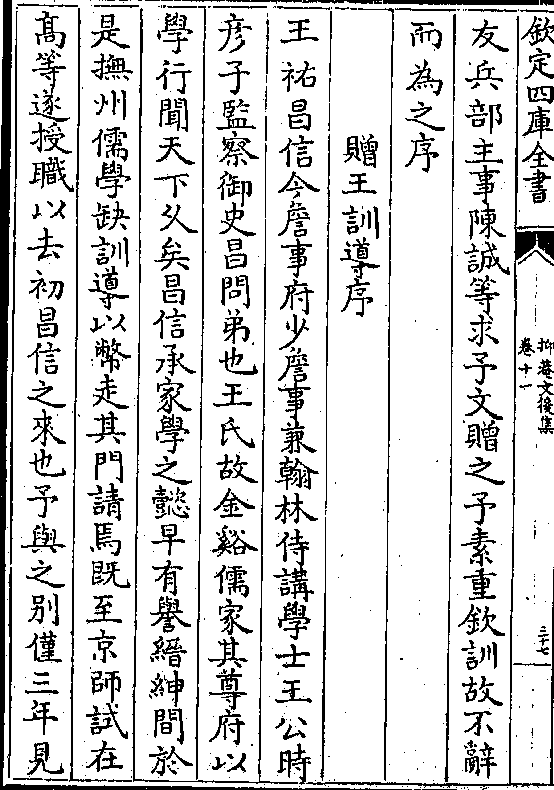 欽定四庫全書
抑菴文後集
卷十一
三十七
友兵部主事陳誠等求予文贈之予素重欽訓故不辭
而為之序
贈王訓導序
王祐昌信今詹事府少詹事兼翰林侍講學士王公時
彦子監察御史昌問弟也王氏故金谿儒家其尊府以
學行聞天下久矣昌信承家學之懿早有譽縉紳間於
是撫州儒學缺訓導以幣走其門請焉既至京師試在
髙等遂授職以去初昌信之來也予與之别僅三年見